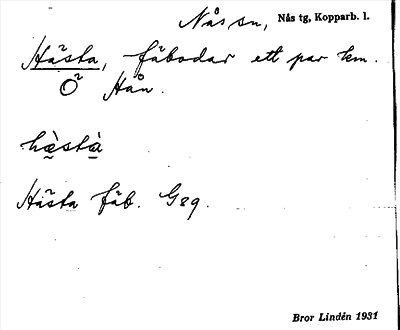 Nås sn, Nås tg, Kopparb. l.
Hästa, fäbodar ett par km.
O² Hån.
hæ̀stà
Hästa fäb. G89.
Bror Lindén 1931